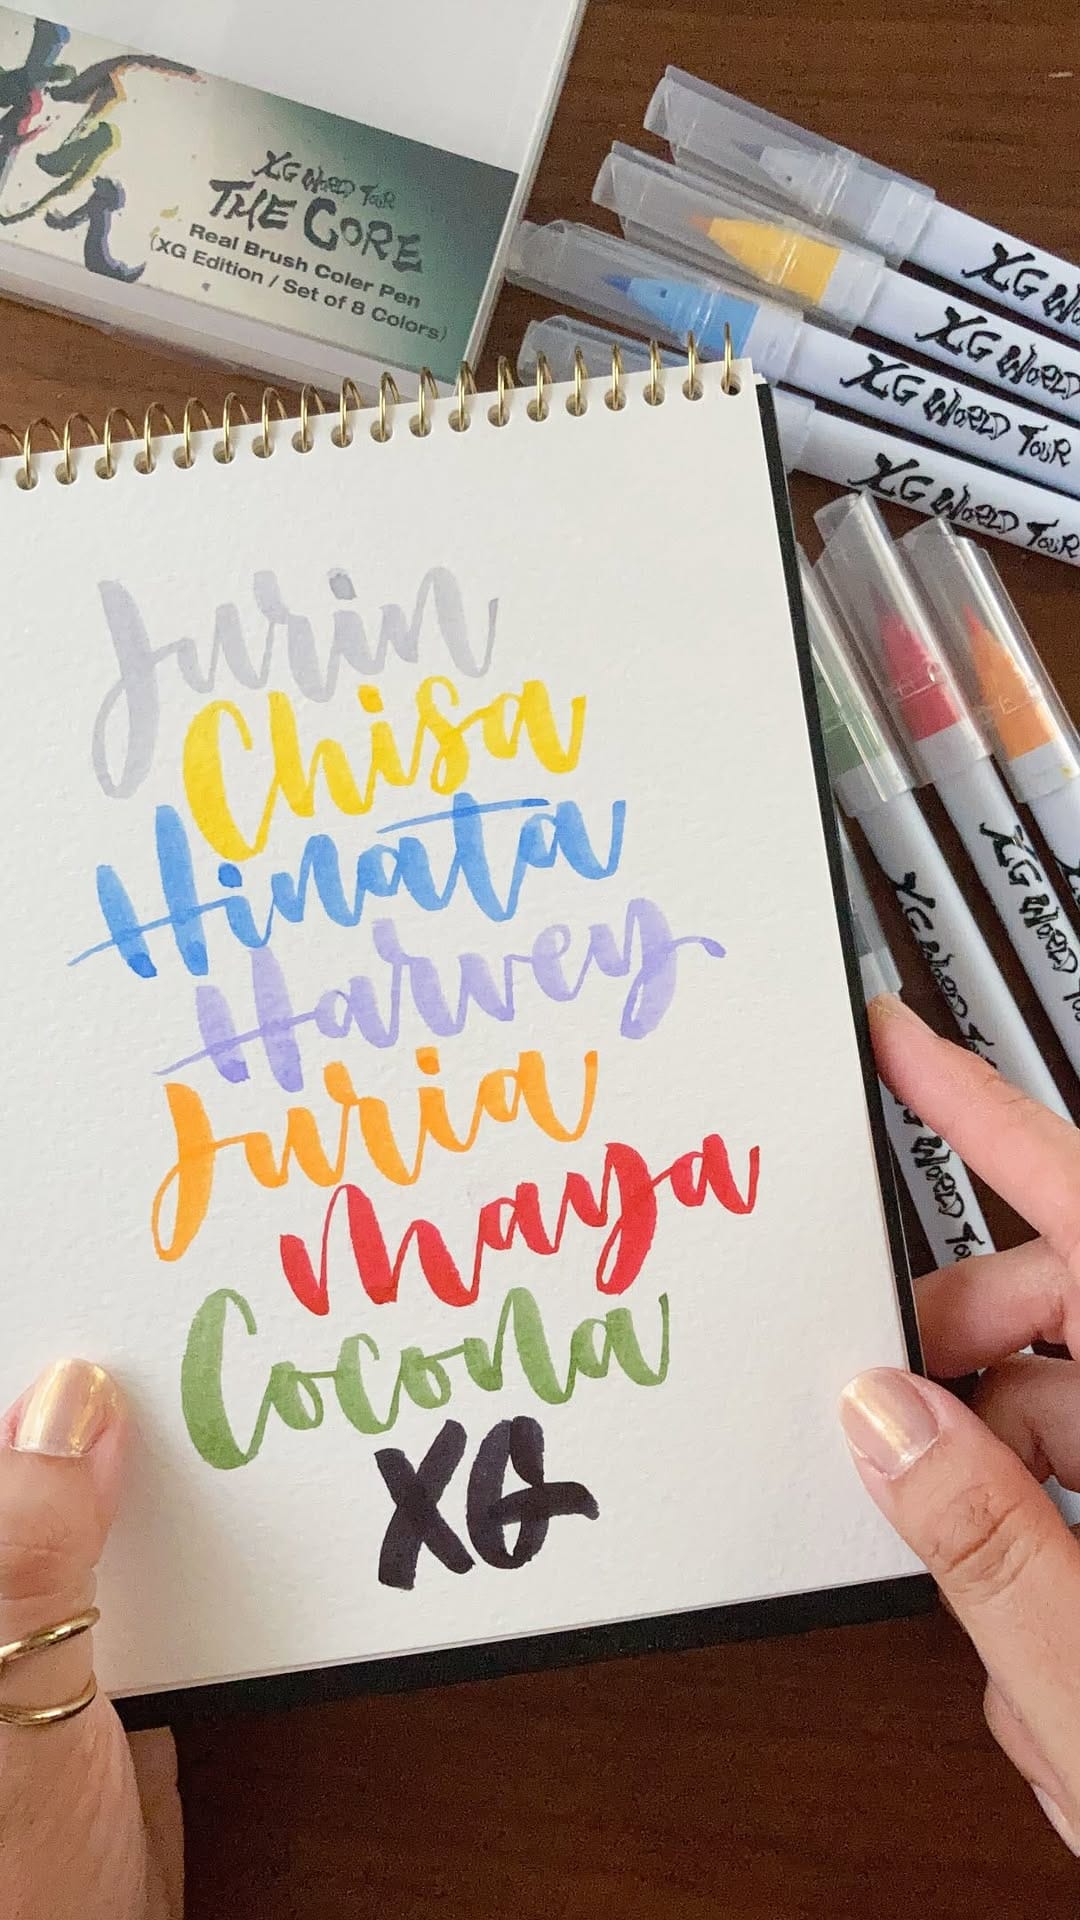 核
XG WORLD TOUR
THE CORE
Real Brush Coler Pen
(XG Edition / Set of 8 Colors)
XG WO
XG WORLD
XG WORLD TOUR
XG WORLD TOUR
Jurin
Chisa
Hinata
Harvey
Juria
Maya
Cocona
XG
XG WORLD TO
XG WORLD TOUR
WORLD TO